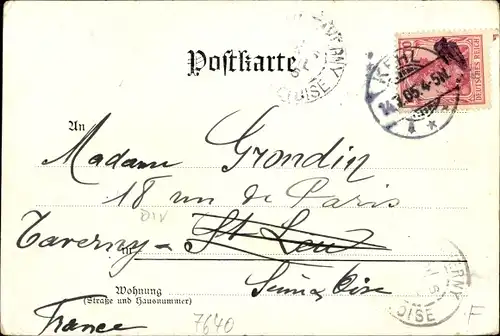 Postkarte
TAVERNY
OISE
KEHL
24.7.05.4-5N.
1
DEUTSCHES REICH
An
Madame Grondin
18 rue de Paris
Div
Taverny - St Leu
in
Seine & Oise
Wohnung
(Straße und Hausnummer)
France
7640
F
ERNY
OISE